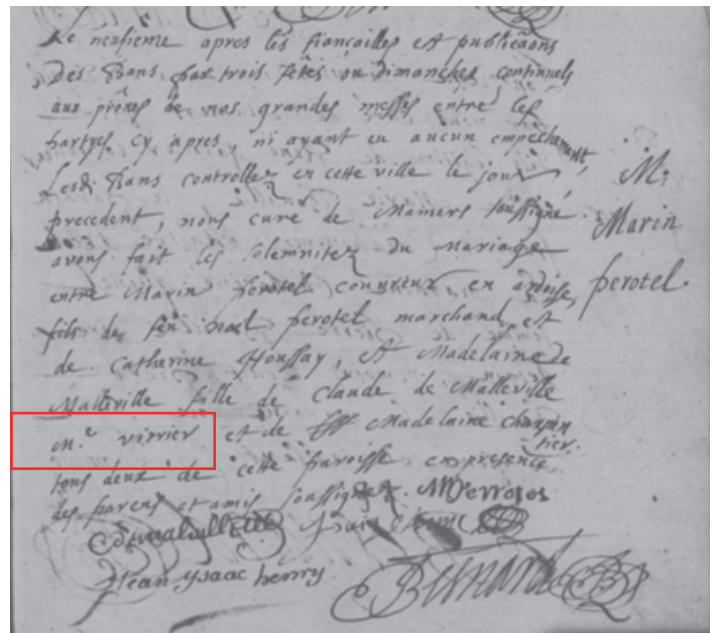 Le neufieme apres les fiançailles et publicãons
Des Bans par trois fetes ou dimanches continuels
aux prônes de nos grandes messes entre les
partyes cy apres, ni ayant eu aucun empechement,
Lesd. Bans controllez en cette ville le jour
precedent, nous curé de Mamers soussigné
avons fait les solemnitez du mariage
entre Marin perotel couvreux en ardoise,
fils de feu noel perotel marchand et
de Catherine Houssay, et Madelaine de
Malleville fille de Claude de Malleville
M.e virrier et de Madelaine charpan
tier.
tous deux de cette paroisse en presence
des parens et amis soussignez. MPerrotel
Jean ysaac henry
Bernard
M:
Marin
perotel.